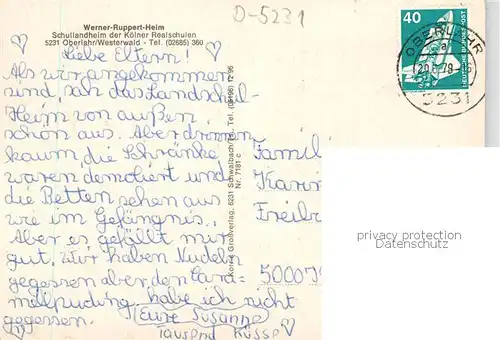 D-5231
Werner-Ruppert-Heim
Schullandheim der Kölner Realschulen
5231 Oberlahr/Westerwald - Tel. (02685) 360
Liebe Eltern!
Als wir angekommen
sind, sah das Landschul-
Heim von außen
schön aus. Aber drinnen
kaum, die Schränke
waren demoliert und
die Betten sehen aus
wie im Gefängnis.
Aber es gefällt mir
gut. Wir haben Nudeln
gegessen aber den Cara-
mellpudding habe ich nicht
gegessen.
Eure Susanne
Tausend Küsse
Großverlag, 6231 Schwalbach/Ts. Tel. (06196) 12 95
Nr. 7181 c
40
DEUTSCHE BUNDESPOST
OBERLAHR
a
78
5231
Famili
Karin
Freib
5000
privacy protection
Datenschutz